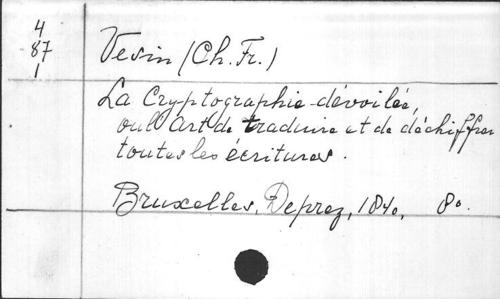 4
87
1
Vesin (Ch. Fr.)
La Cryptographie dévoilée,
ou l'Art de traduire et de déchiffrer
toutes les écritures.
Bruxelles, Deprez, 1840, 8o.